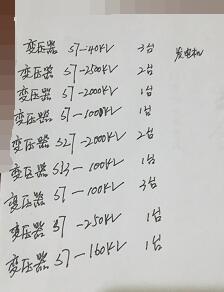 变压器 S7-40KV 3台 发电机
变压器 S7-2500KV 2台
变压器 S7-2000KV 1台
变压器 S7-1000KV 1台
变压器 S27-2000KV 2台
变压器 S13-100KV 1台
变压器 S7-100KV 3台
变压器 S7-250KV 1台
变压器 S7-160KV 1台